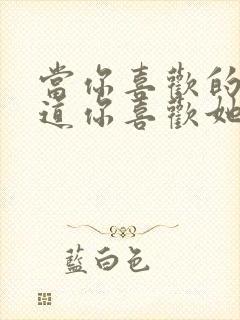 當你喜歡的
道你喜歡她
藍白色